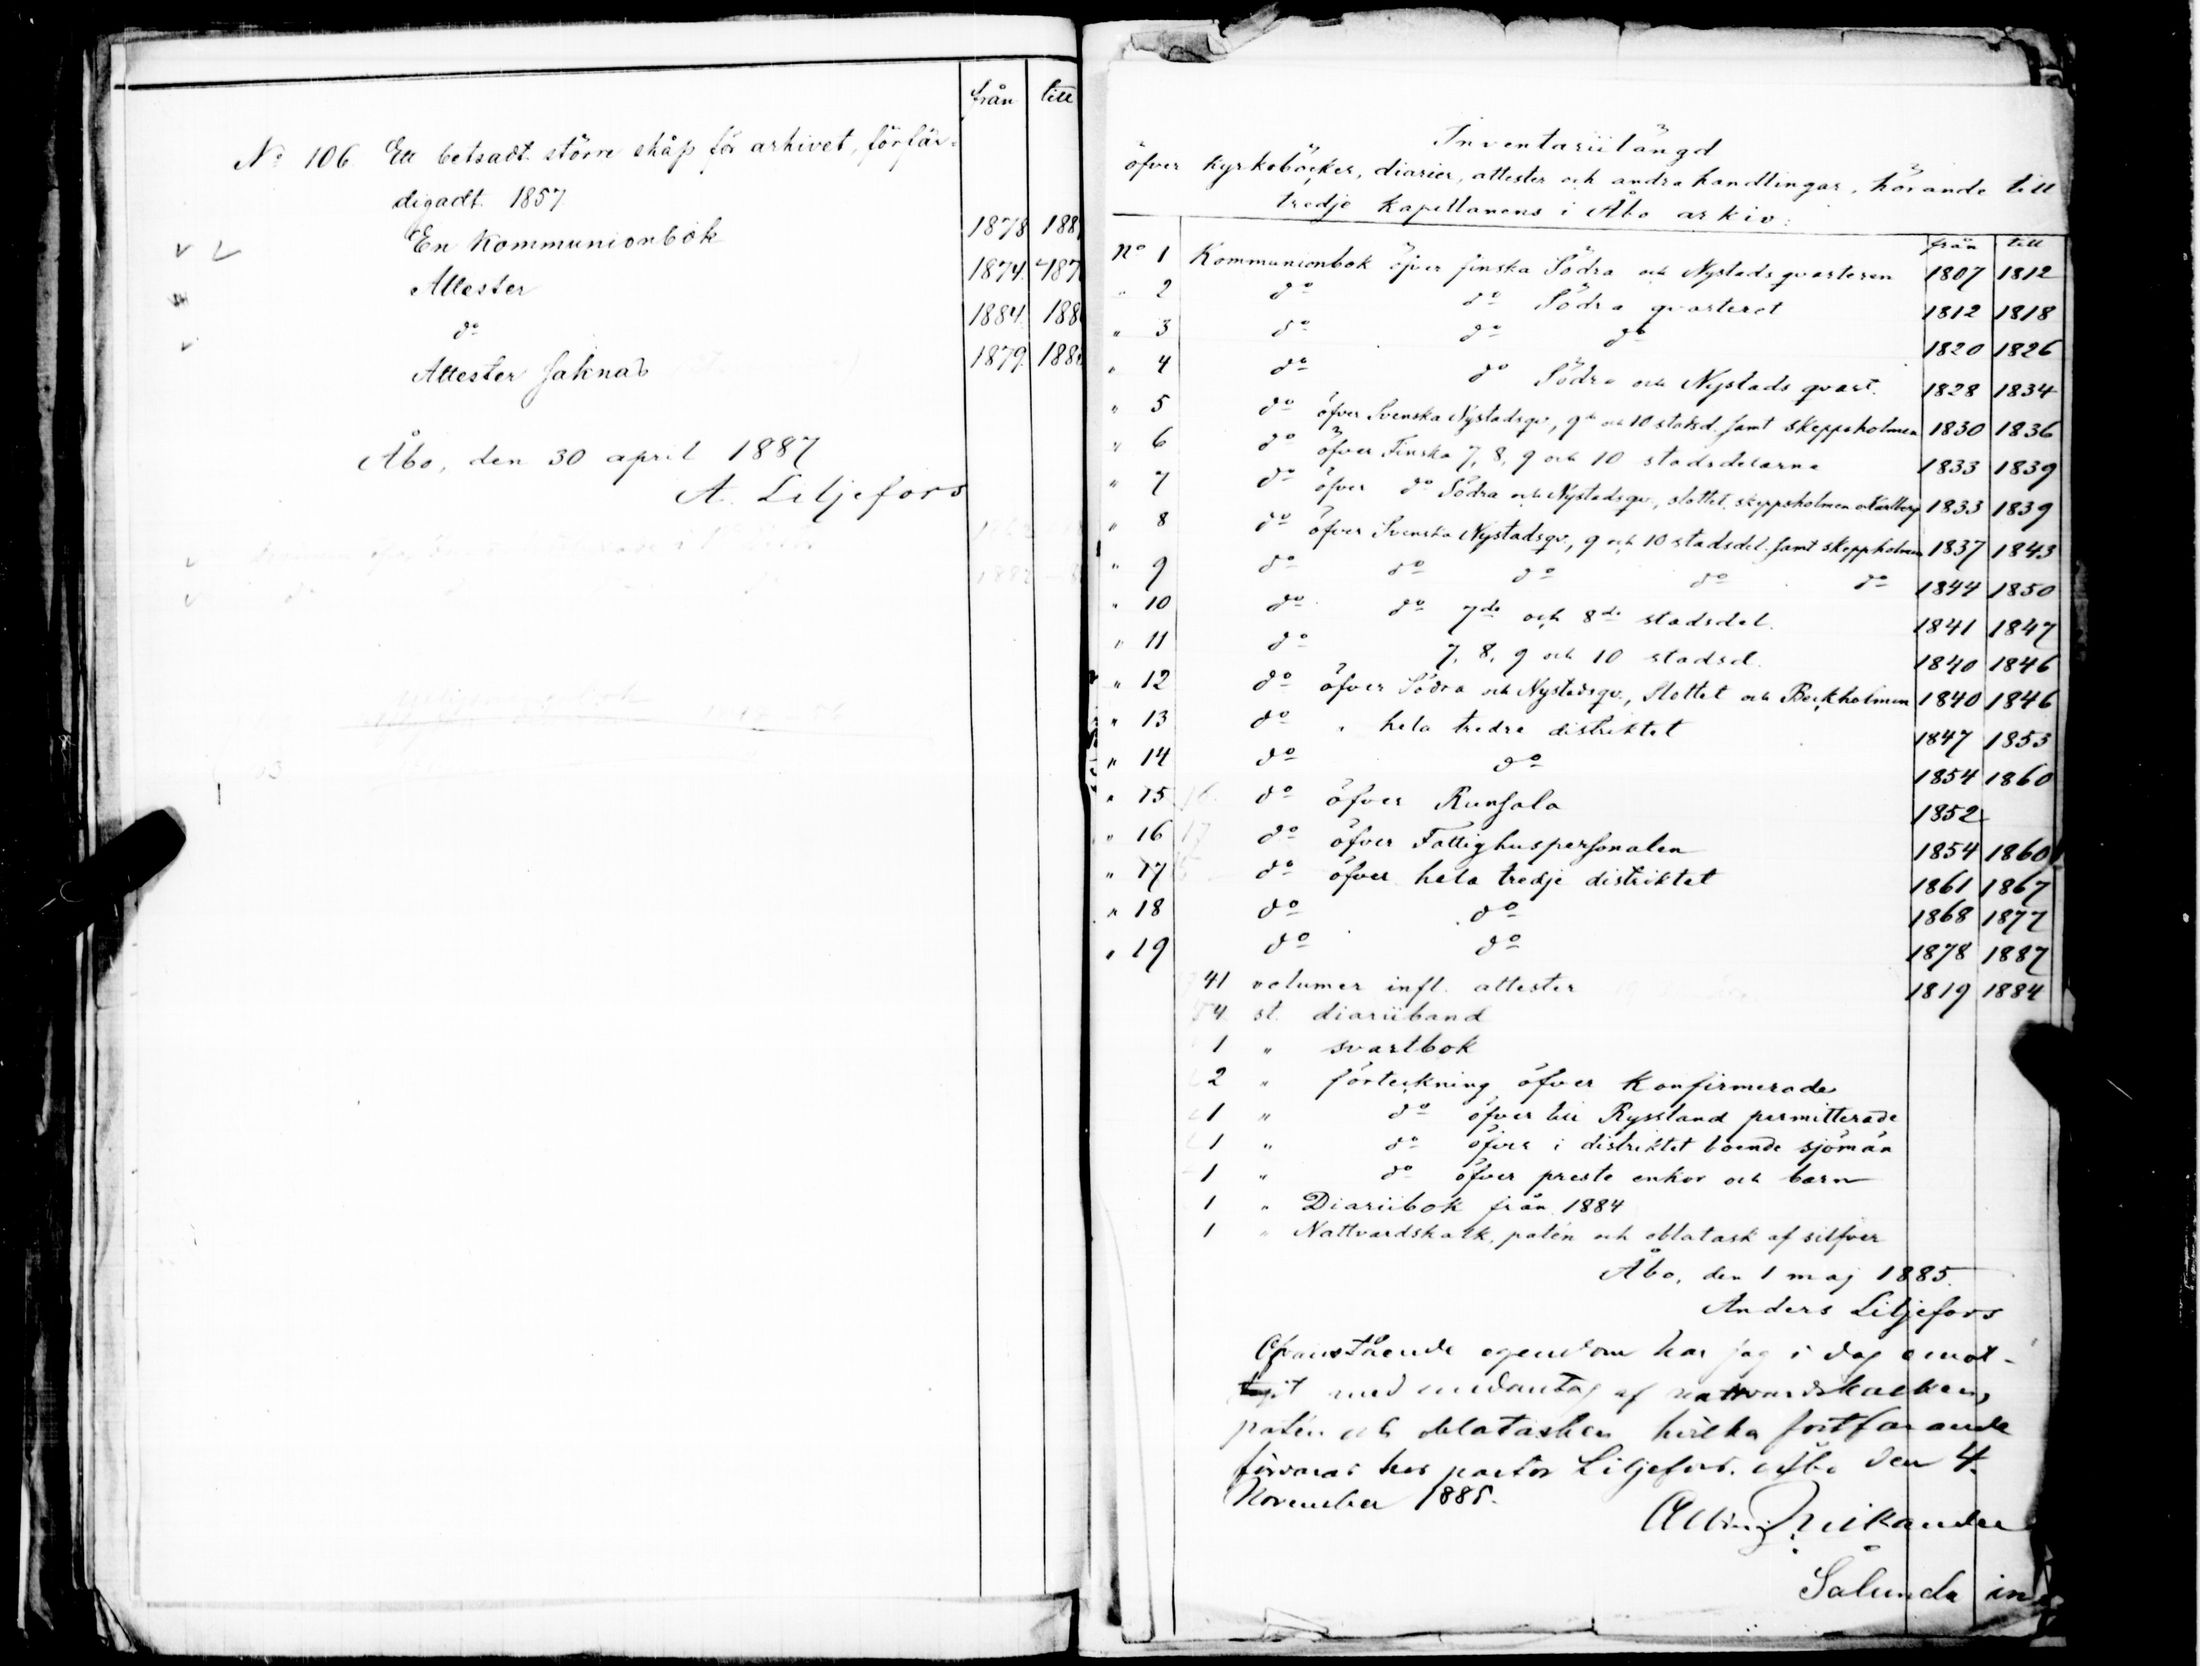 från till
No 106. Ett betsadt större skåp för arkivet, förfär-
digadt 1857
En Kommunionbok 1878 188
Attester 1874 187
do 1884 188
Attester saknas 1879 188
Åbo, den 30 april 1887
A. Liljefors
Inventariilängd
öfver kyrkoböcker, diarier, attester och andra handlingar, hörande till
tredje Kapellanens i Åbo arkiv.
från till
No 1 Kommunionbok öfver finska Södra och Nystads qvarteren 1807 1812
" 2 do do Södra qvarteret 1812 1818
" 3 do do do 1820 1826
" 4 do do Södra och Nystads qvart. 1828 1834
" 5 do öfver Svenska Nystadsqv, 9de och 10 stadsd. samt Skeppsholmen 1830 1836
" 6 do öfver Finska 7, 8, 9 och 10 stadsdelarne 1833 1839
" 7 do öfver do Södra och Nystadsqv., slottet, skeppsholmen o Karlberg 1833 1839
" 8 do öfver Svenska Nystadsqv., 9 och 10 stadsdel. samt skeppholmen 1837 1843
" 9 do do do do do 1844 1850
" 10 do do 7de och 8de stadsdel. 1841 1847
" 11 do 7, 8, 9 och 10 stadsd. 1840 1846
" 12 do öfver Södra och Nystadsqv., Slottet och Beckholmen 1840 1846
" 13 do " hela tredje distriktet 1847 1853
" 14 do do 1854 1860
" 15 16. do öfver Runsala 1852
" 16 17 do öfver Fattighuspersonalen 1854 1860
" 17 15 do öfver hela tredje distriktet 1861 1867
" 18 do do 1868 1877
" 19 do do 1878 1887
41 volumer infl. attester 1819 1884
54 st. diariiband
1 " svartbok
2 " förteckning öfver Konfirmerade
1 " do öfver till Ryssland permitterade
1 " do öfver i distriktet boende sjömän
1 " do öfver preste enkor och barn
1 " Diariibok från 1884
1 " Nattvardskalk, patén och oblatask af silfver
Åbo, den 1 maj 1885.
Anders Liljefors
Ofvanstående egendom har jag i dag emot-
tagit med undantag af nattvardskalken,
patén och oblatasken hvilka fortfarande
förvaras hos pastor Liljefors. Åbo den 4
November 1885.
Nikander
Sålunda in